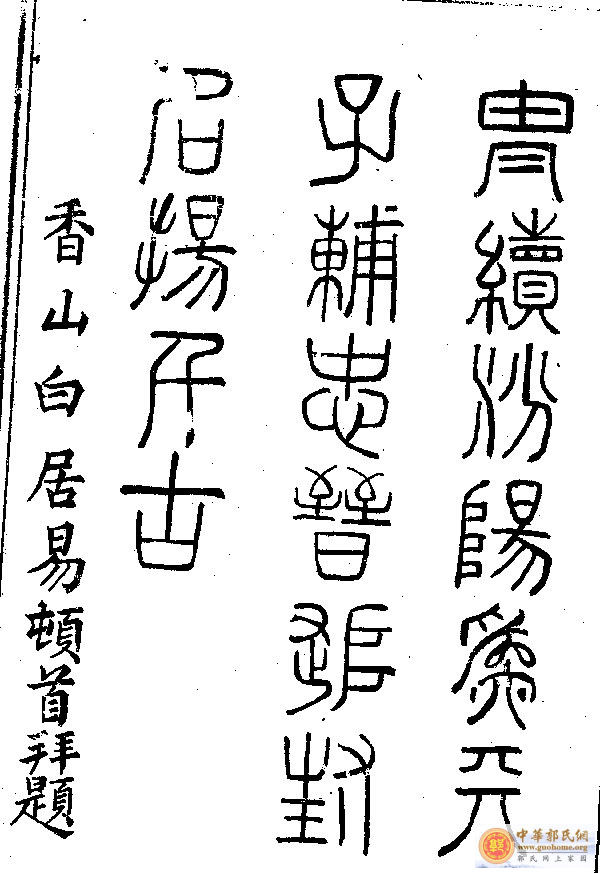 胄續汾陽元
子輔忠晉追封
名揚千古
香山白居易頓首拜題
中華郭氏網
www.guohome.org
郭氏網上家園